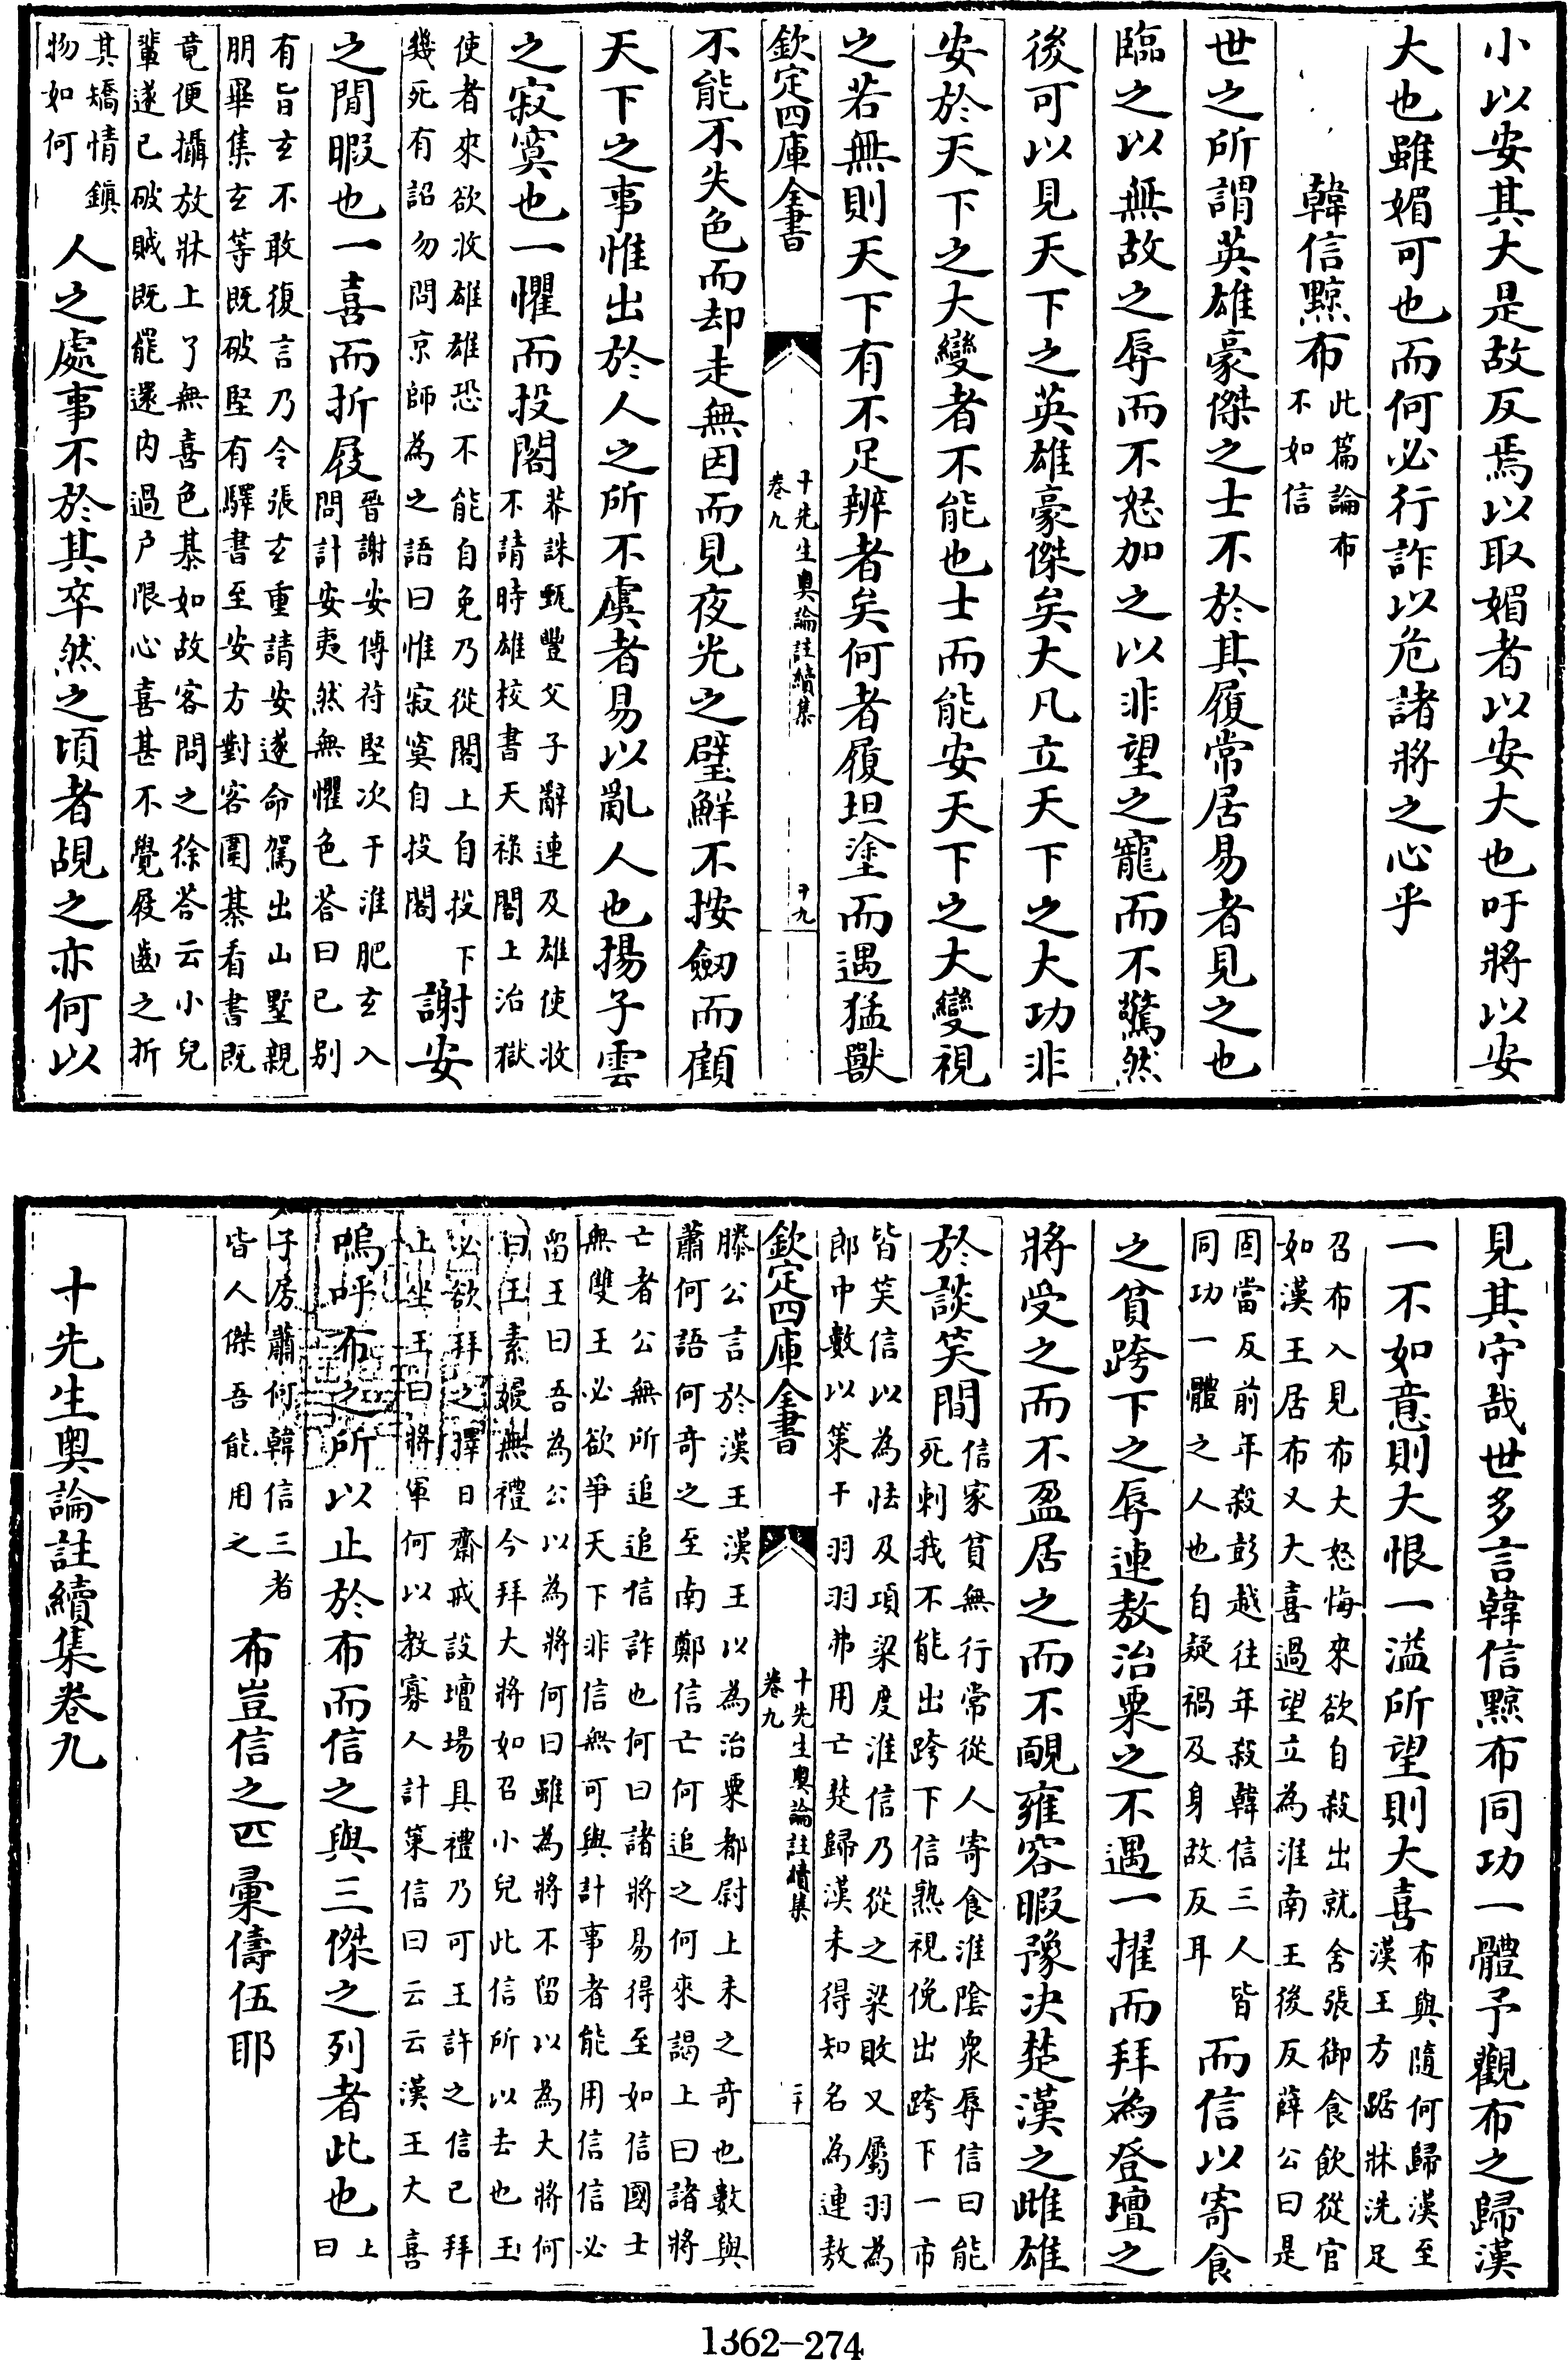 小以安其大是故反焉以取媚者以安大也吁將以安
大也雖媚可也而何必行詐以危諸將之心乎
韓信黥布此篇論布不如信
世之所謂英雄豪傑之士不於其履常居易者見之也
臨之以無故之辱而不怒加之以非望之寵而不驚然
後可以見天下之英雄豪傑矣大凡立天下之大功非
安於天下之大變者不能也士而能安天下之大變視
之若無則天下有不足辨者矣何者履坦塗而遇猛獸
欽定四庫全書
十先生奧論註續集
卷九
十九
不能不失色而却走無因而見夜光之璧鮮不按劒而顧
天下之事惟出於人之所不虞者易以亂人也揚子雲
之寂寞也一懼而投閣莽誅甄豐父子辭連及雄使收不請時雄校書天祿閣上治獄
使者來欲收雄雄恐不能自免乃從閣上自投下幾死有詔勿問京師為之語曰惟寂寞自投閣謝安
之閒暇也一喜而折屐晉謝安傳苻堅次于淮肥玄入問計安夷然無懼色荅曰已别
有旨玄不敢復言乃令張玄重請安遂命駕出山墅親朋畢集玄等既破堅有驛書至安方對客圍棊看書既
竟便攝放牀上了無喜色棊如故客問之徐荅云小兒輩遂已破賊既罷還内過户限心喜甚不覺屐齒之折
其矯情鎮物如何人之處事不於其卒然之頃者覘之亦何以
見其守哉世多言韓信黥布同功一體予觀布之歸漢
一不如意則大恨一溢所望則大喜布與隨何歸漢至漢王方踞牀洗足
召布入見布大怒悔來欲自殺出就舍張御食飲從官如漢王居布又大喜過望立為淮南王後反薛公曰是
固當反前年殺彭越往年殺韓信三人皆同功一體之人也自疑禍及身故反耳而信以寄食
之貧跨下之辱連敖治粟之不遇一擢而拜為登壇之
將受之而不盈居之而不靦雍容暇豫决楚漢之雌雄
於談笑間信家貧無行常從人寄食淮陰衆辱信曰能死刺我不能出跨下信熟視俛出跨下一市
皆笑信以為怯及項梁度淮信乃從之梁敗又屬羽為郎中數以策干羽羽弗用亡楚歸漢未得知名為連敖
欽定四庫全書
十先生奧論註續集
卷九
二十
滕公言於漢王漢王以為治粟都尉上未之奇也數與蕭何語何奇之至南鄭信亡何追之何來謁上曰諸將
亡者公無所追追信詐也何曰諸將易得至如信國士無雙王必欲爭天下非信無可與計事者能用信信必
留王曰吾為公以為將何曰雖為將不留以為大將何曰王素嫚無禮今拜大將如召小兒此信所以去也王
必欲拜之擇日齋戒設壇場具禮乃可王許之信已拜上坐王曰將軍何以教寡人計策信曰云云漢王大喜
嗚呼布之所以止於布而信之與三傑之列者此也上曰
子房蕭何韓信三者皆人傑吾能用之布豈信之匹彚儔伍耶
十先生奧論註續集卷九
1362-274